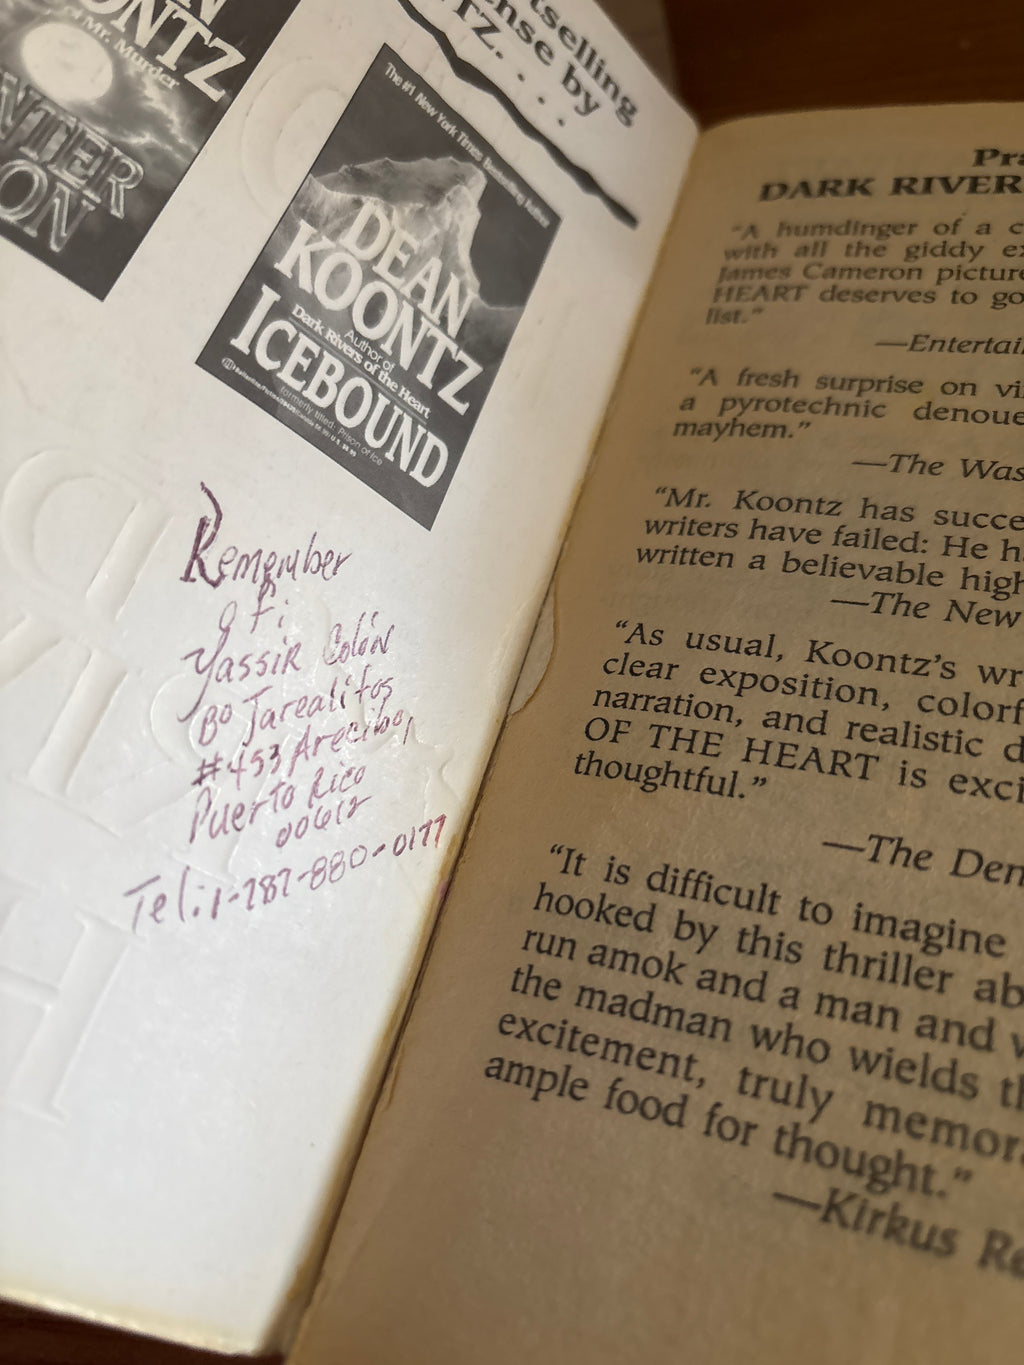 tselling
ense by
TZ. . . .
N
ONTZ
of Mr. Murder
NTER
ON
The #1 New York Times Bestselling Author
DEAN
KOONTZ
Author of
Dark Rivers of the Heart
ICEBOUND
formerly titled: Prison of Ice
Remember
of:
Yassir Colón
Bo Jarealitos
#453 Arecibo,
Puerto Rico
00612
Tel: 1-787-880-0177
Pra
DARK RIVER
"A humdinger of a c
with all the giddy ex
James Cameron picture
HEART deserves to go
list."
—Entertai
"A fresh surprise on vi
a pyrotechnic denoue
mayhem."
—The Was
"Mr. Koontz has succe
writers have failed: He h
written a believable high
—The New
"As usual, Koontz's wr
clear exposition, colorf
narration, and realistic d
OF THE HEART is exci
thoughtful."
—The Den
"It is difficult to imagine
hooked by this thriller ab
run amok and a man and w
the madman who wields th
excitement, truly memora
ample food for thought."
—Kirkus Re